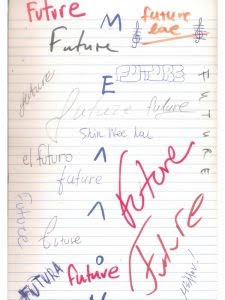 Future
future
lae
Future
FUTURE
future
Μ
Ε
Λ
Λ
ο
FUTURE
future
future
Shin Mee Lae
el futuro
future
Future
future
future
Future
Future
FUTURA
future